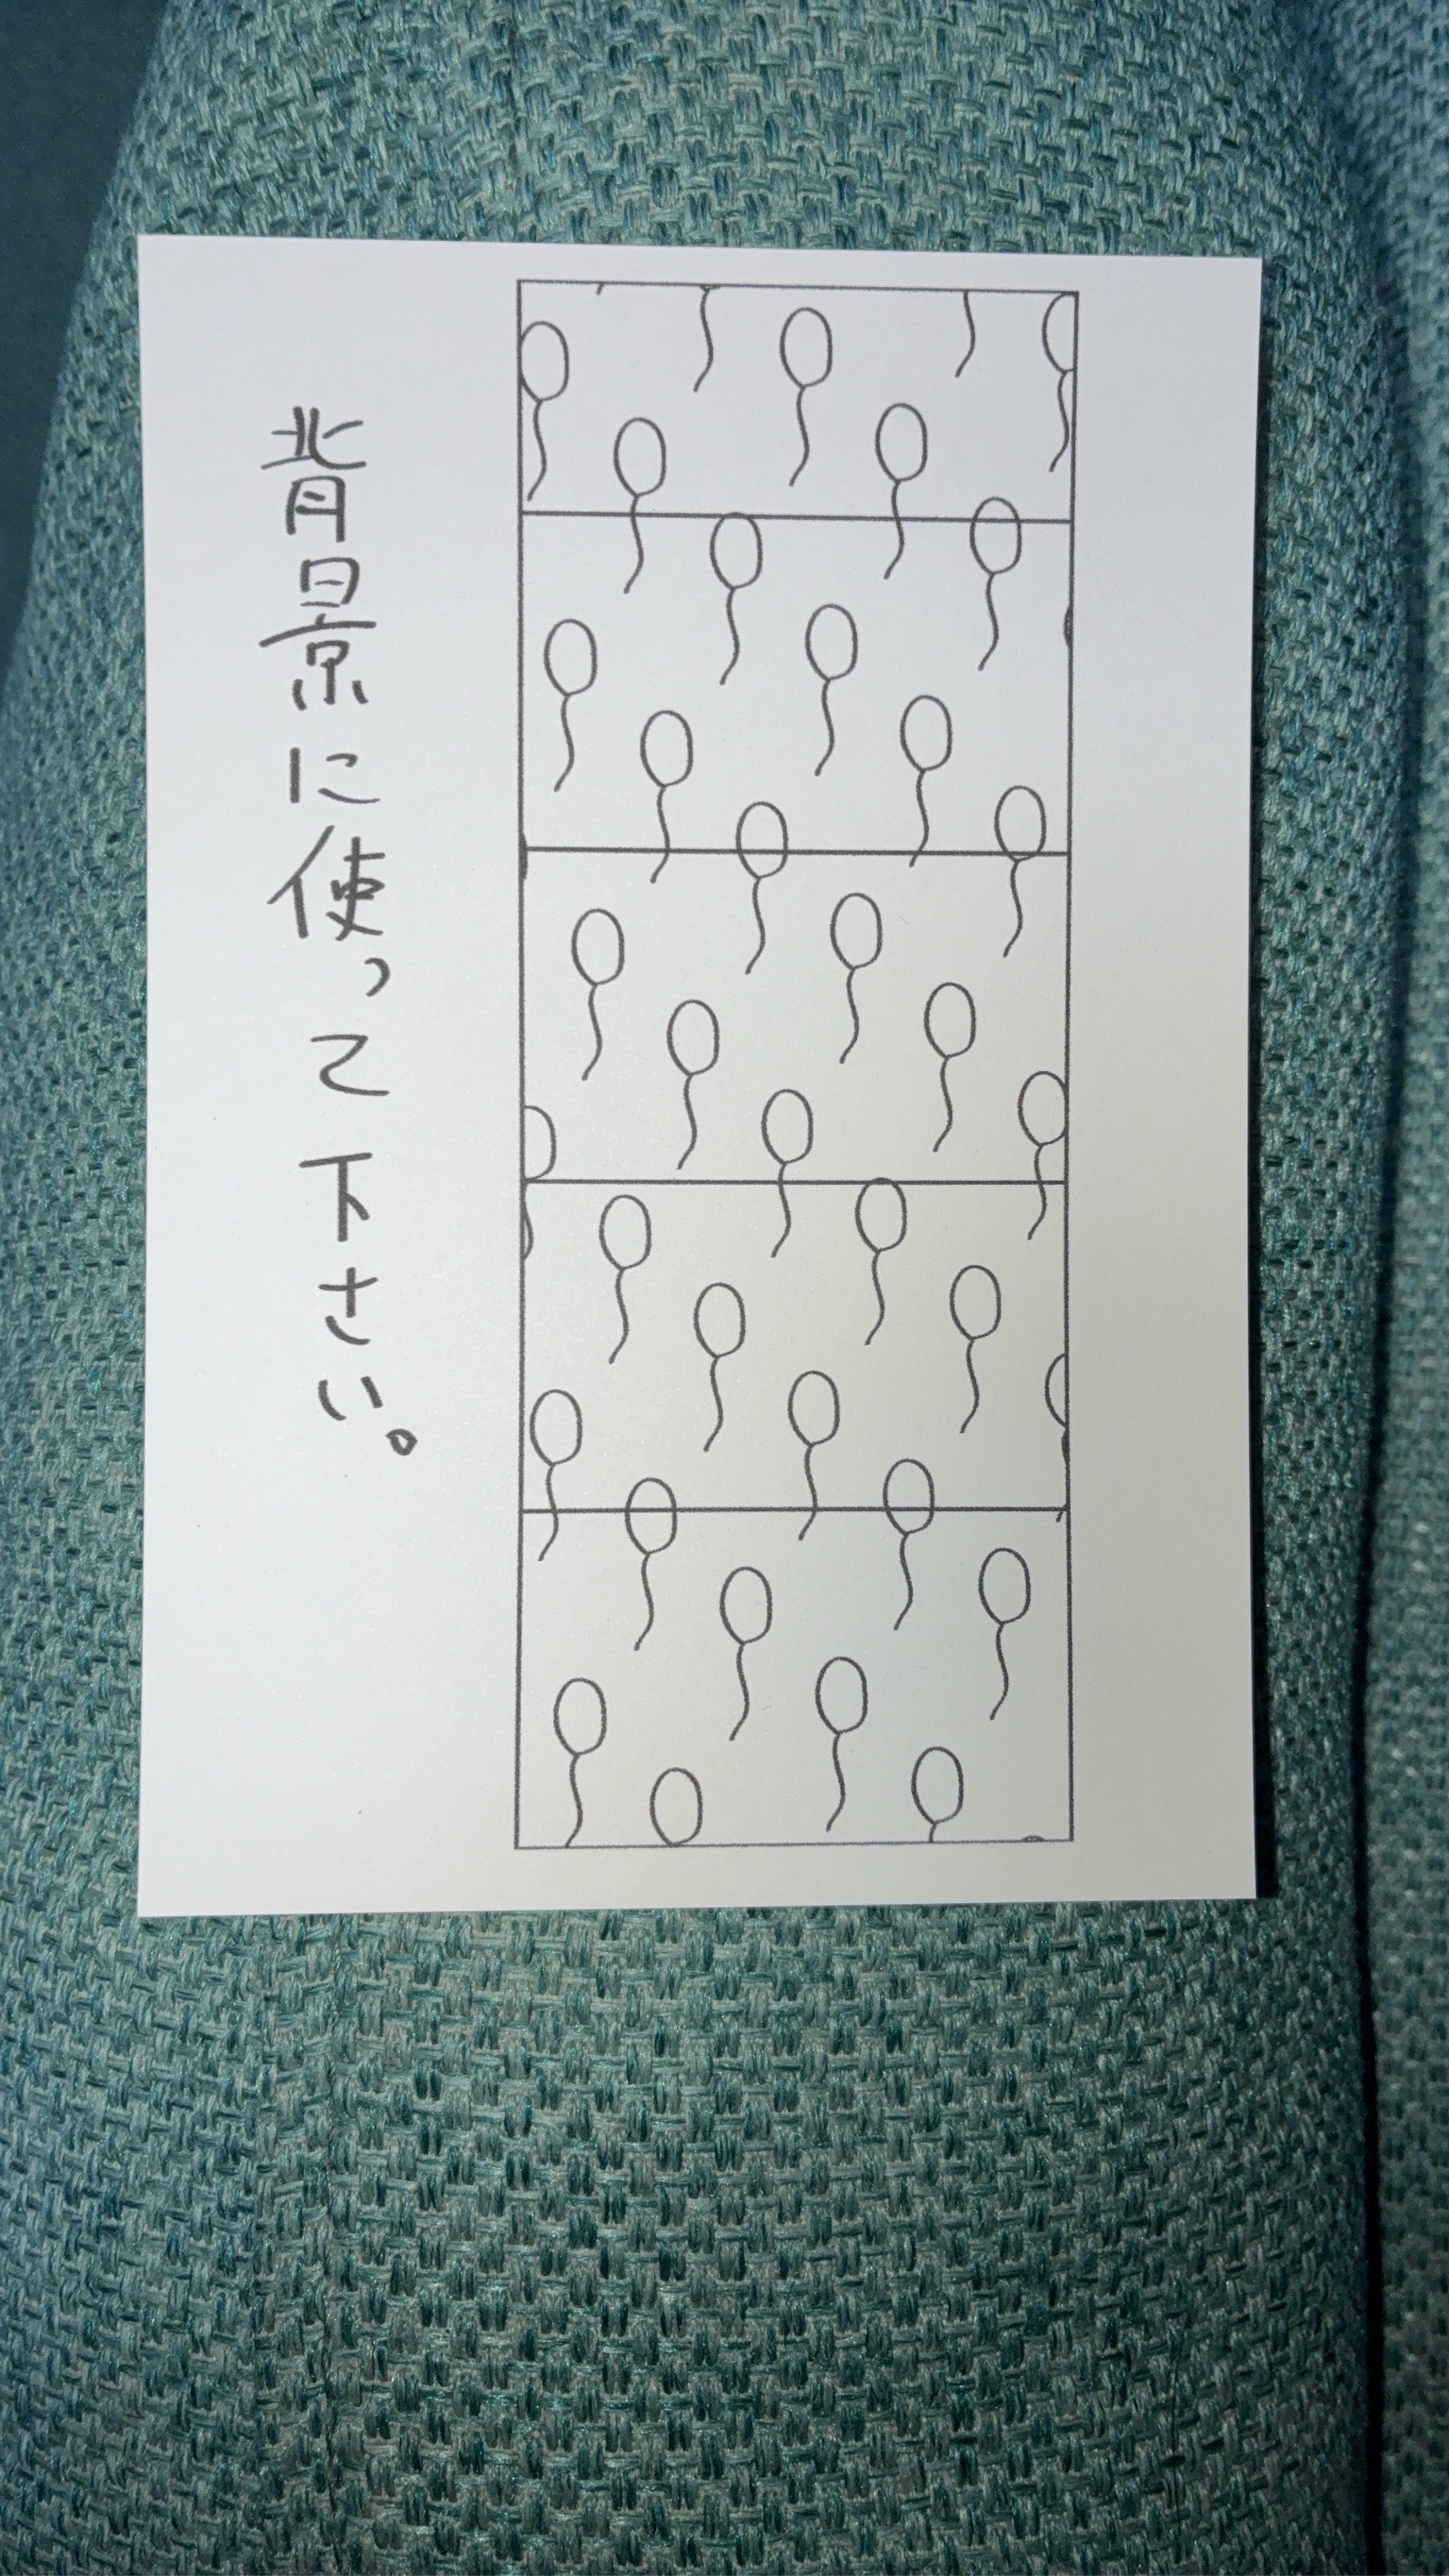 背景に使って下さい。